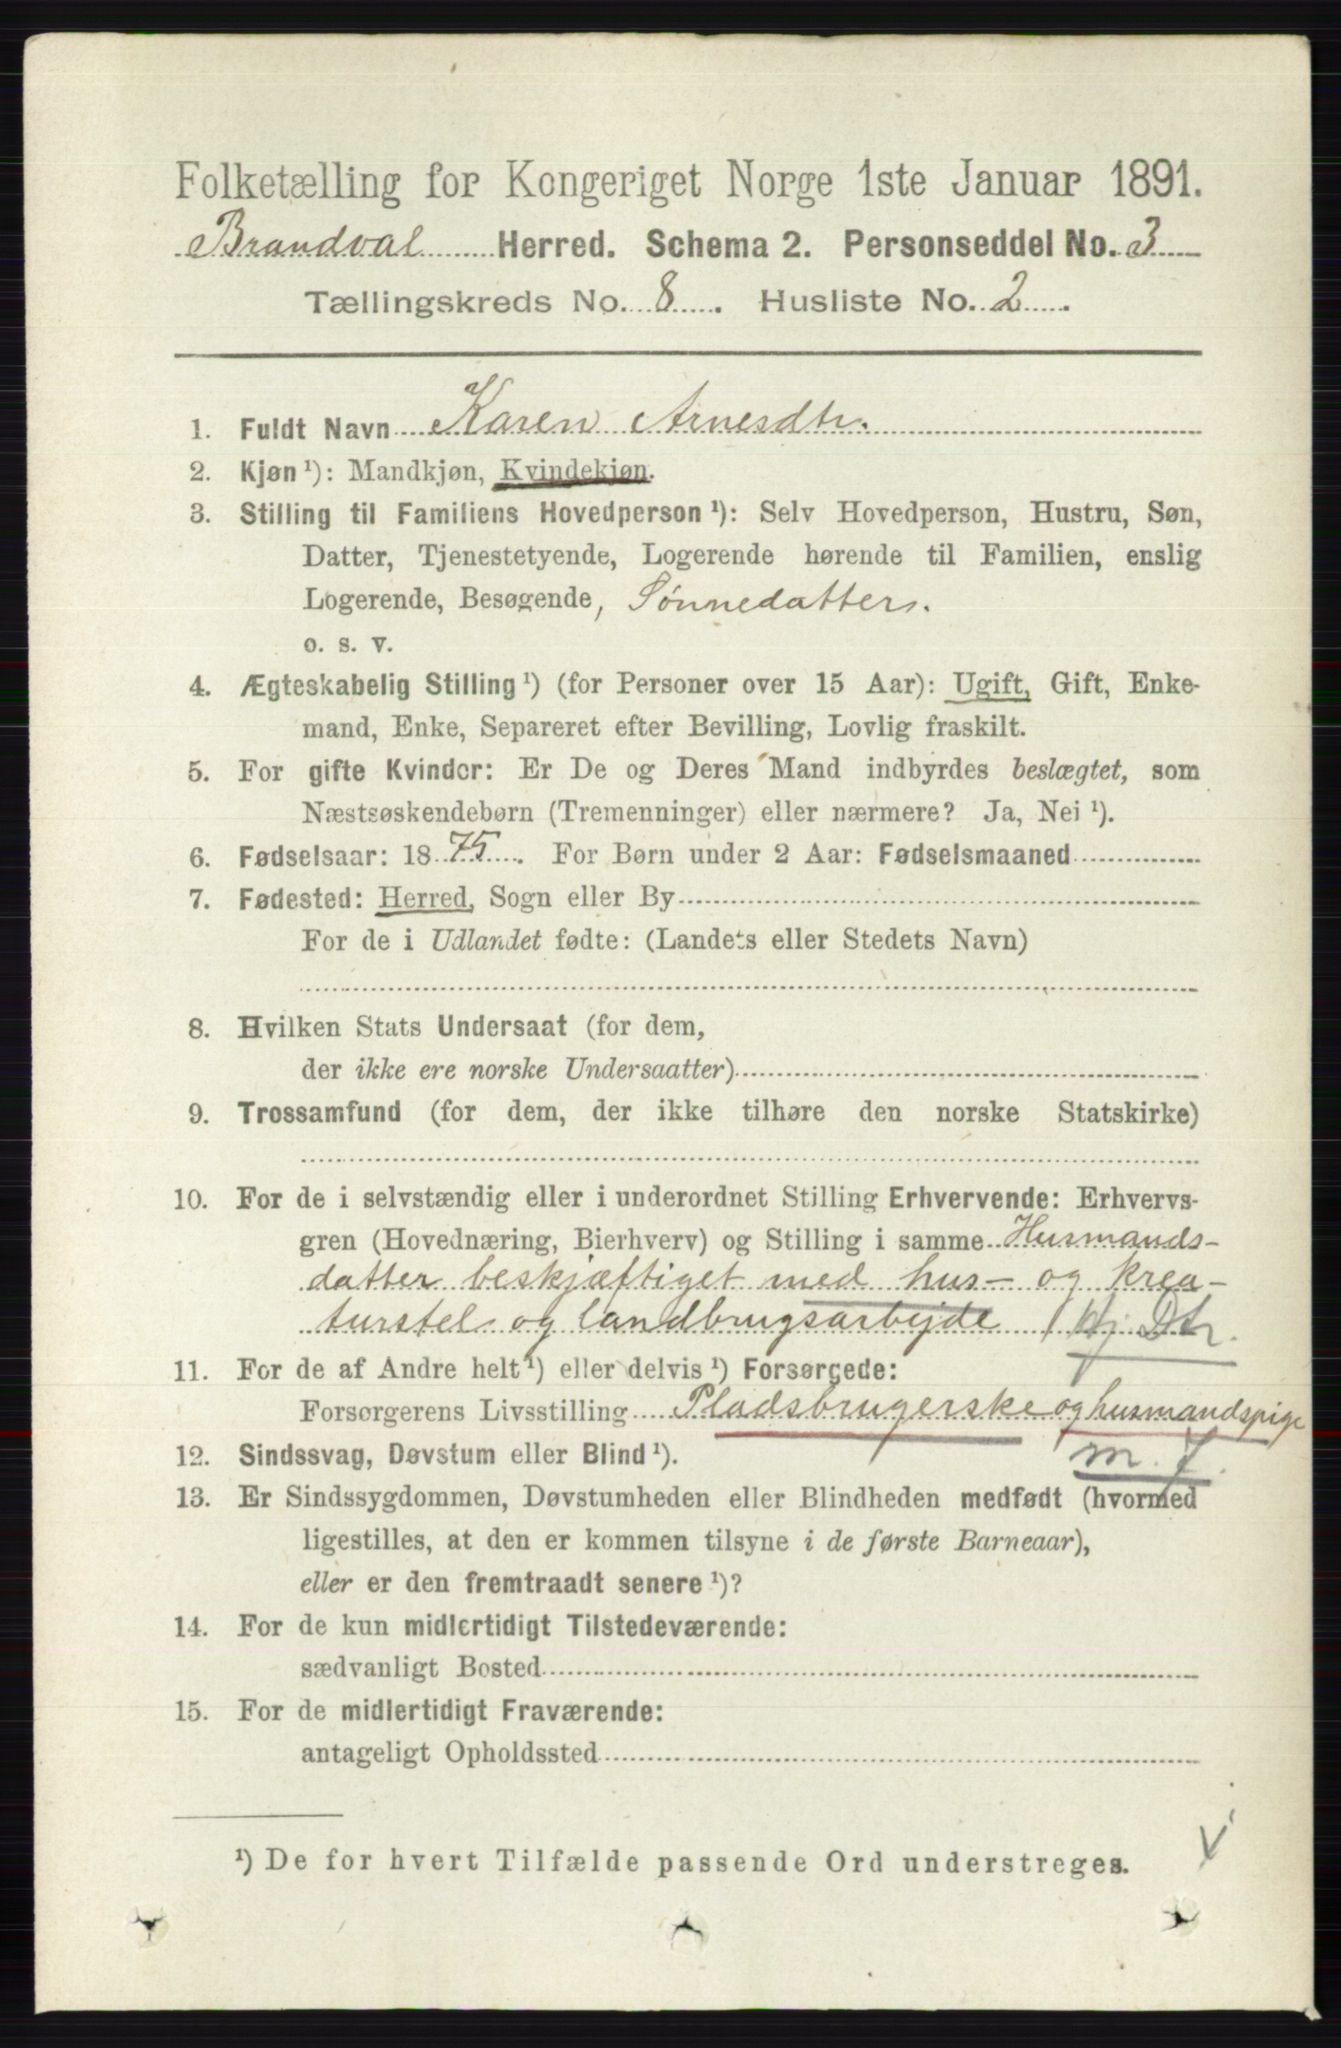 Folketælling for Kongeriget Norge 1ste Januar 1891.
Brandval Herred. Schema 2. Personseddel No. 3
Tællingskreds No. 8. Husliste No. 2.
1. Fuldt Navn Karen Arnesdtr.
2. Kjøn ¹): Mandkjøn, Kvindekjøn.
3. Stilling til Familiens Hovedperson ¹): Selv Hovedperson, Hustru, Søn,
Datter, Tjenestetyende, Logerende hørende til Familien, enslig
Logerende, Besøgende, Sønnedatter.
o. s. v.
4. Ægteskabelig Stilling ¹) (for Personer over 15 Aar): Ugift, Gift, Enke-
mand, Enke, Separeret efter Bevilling, Lovlig fraskilt.
5. For gifte Kvinder: Er De og Deres Mand indbyrdes beslægtet, som
Næstsøskendebørn (Tremenninger) eller nærmere? Ja, Nei ¹).
6. Fødselsaar: 1875. For Børn under 2 Aar: Fødselsmaaned
7. Fødested: Herred, Sogn eller By
For de i Udlandet fødte: (Landets eller Stedets Navn)
8. Hvilken Stats Undersaat (for dem,
der ikke ere norske Undersaatter)
9. Trossamfund (for dem, der ikke tilhøre den norske Statskirke)
10. For de i selvstændig eller i underordnet Stilling Erhvervende: Erhvervs-
gren (Hovednæring, Bierhverv) og Stilling i samme Husmands-
datter beskjæftiget med hus- og krea-
turstel og landbrugsarbejde Dtr.
11. For de af Andre helt ¹) eller delvis ¹) Forsørgede:
Forsørgerens Livsstilling Pladsbrugerske og husmandspige
12. Sindssvag, Døvstum eller Blind ¹). m.
13. Er Sindssygdommen, Døvstumheden eller Blindheden medfødt (hvormed
ligestilles, at den er kommen tilsyne i de første Barneaar),
eller er den fremtraadt senere ¹)?
14. For de kun midlertidigt Tilstedeværende:
sædvanligt Bosted
15. For de midlertidigt Fraværende:
antageligt Opholdssted
¹) De for hvert Tilfælde passende Ord understreges.